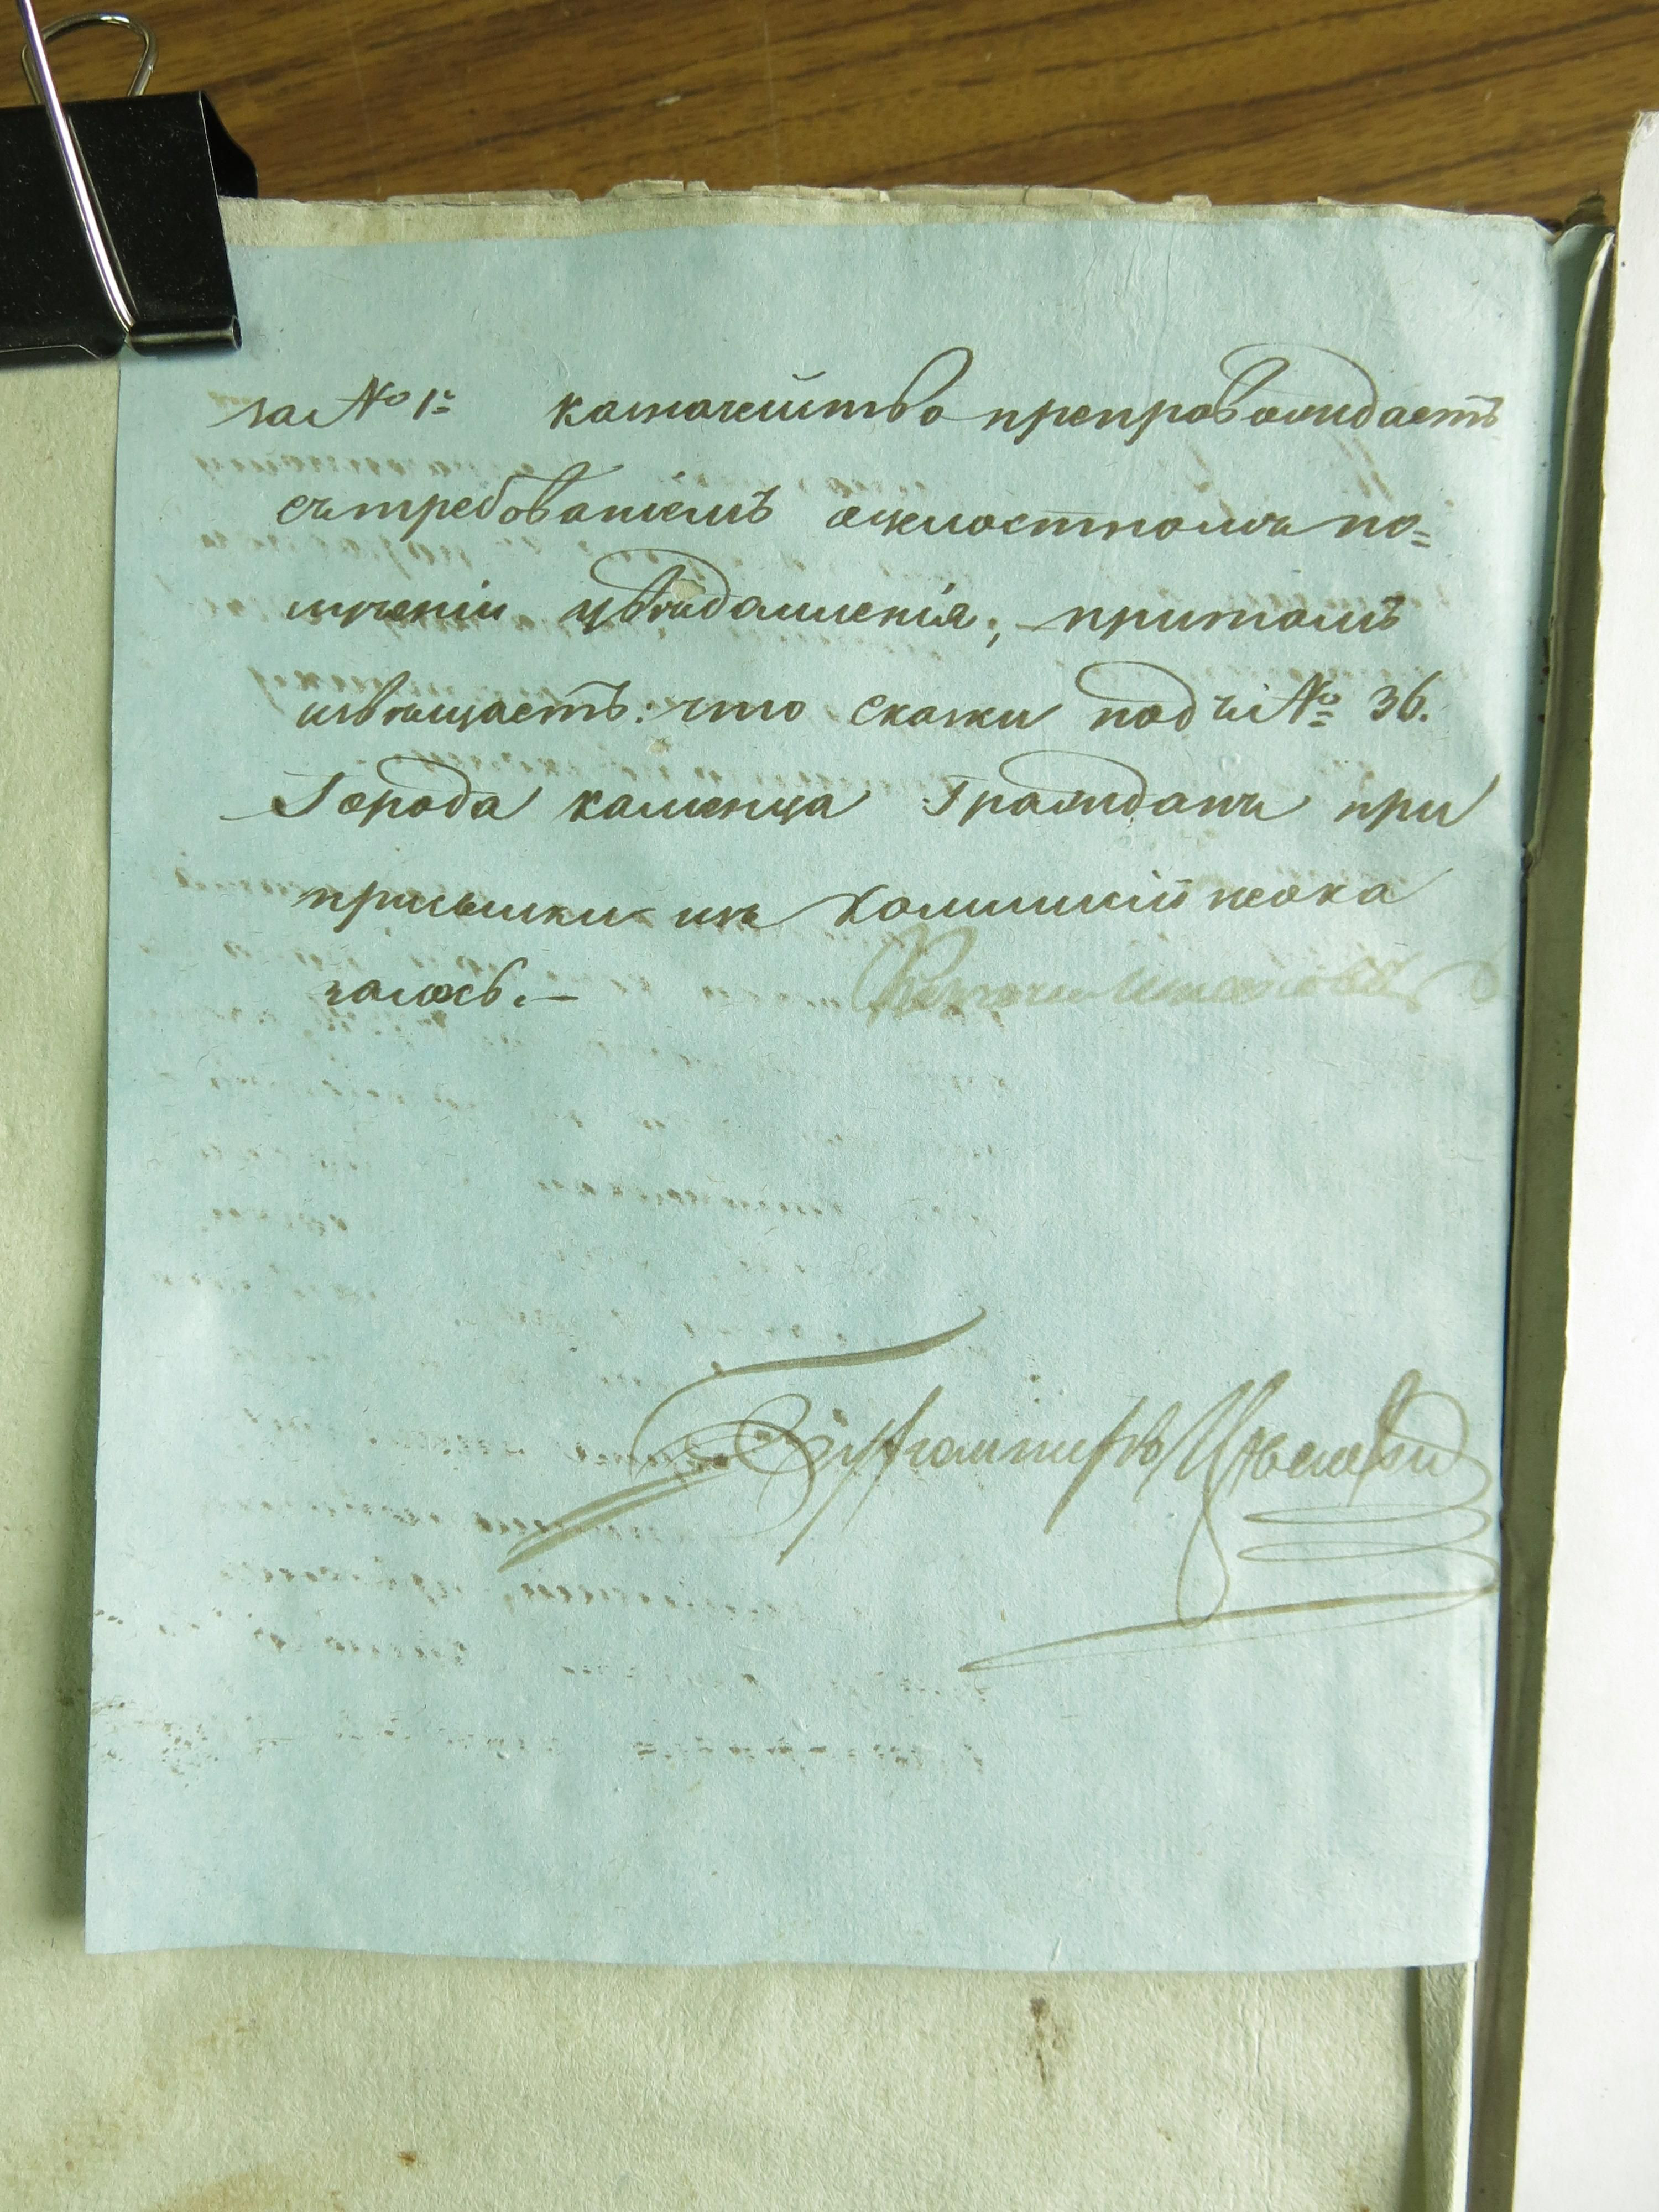 за № 1м казначейство препровождаетъ
съ требованіемъ ожностномъ по=
лученіи увѣдомленія; притомъ
извѣщаетъ: что скаски подъ № 36.
Города каменца Гражданъ при
присылки изъ Коммисій неока
залось.—
Бургомистръ